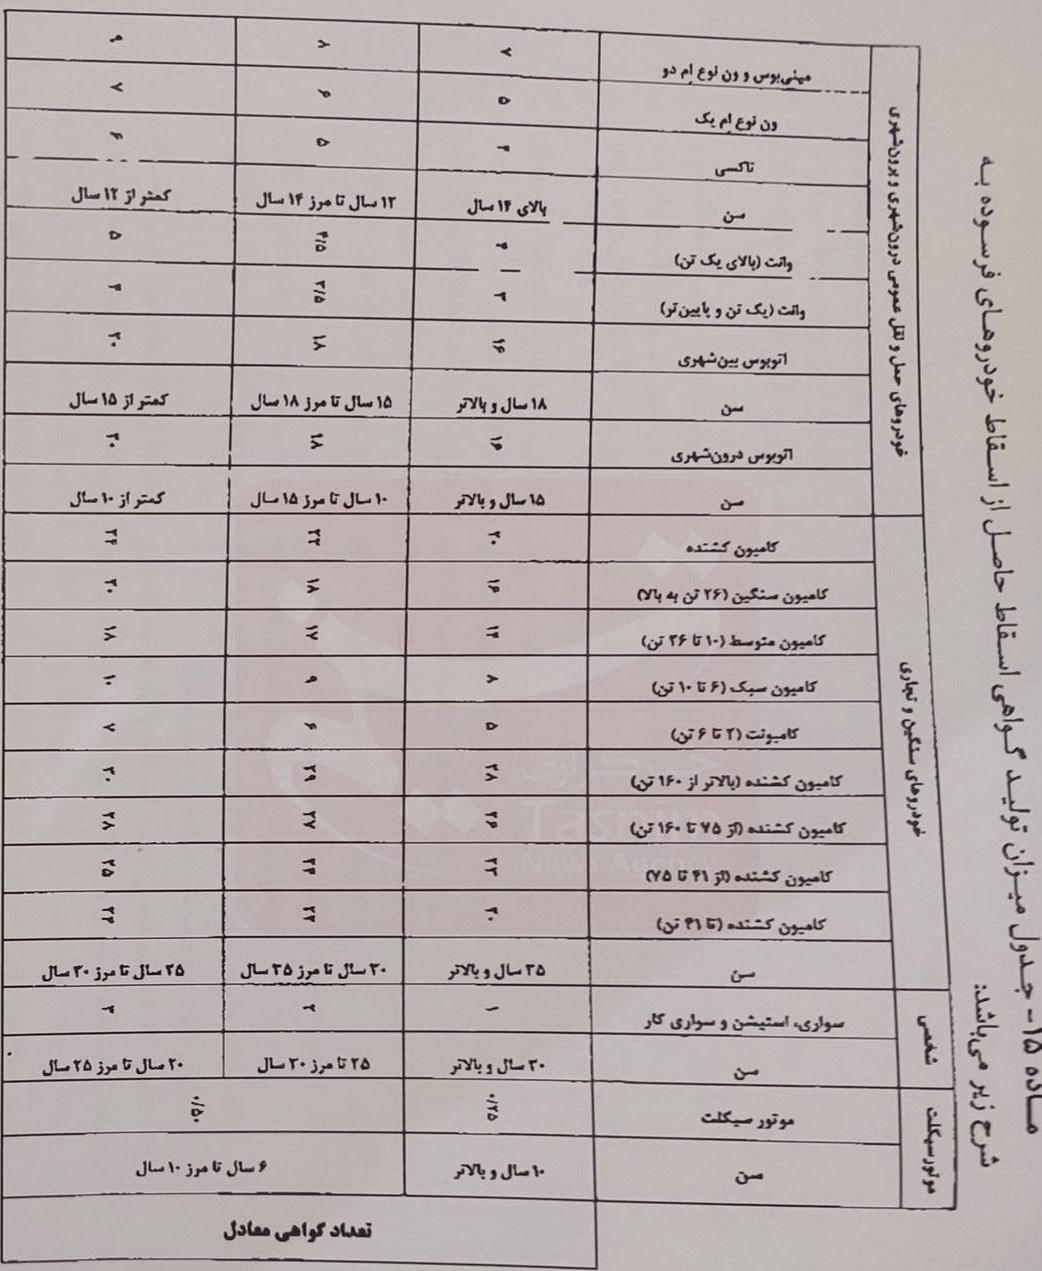 ماده ۱۵- جدول میزان تولید گواهی اسقاط حاصل از اسقاط خودروهای فرسوده به
شرح زیر می‌باشد:
خودروهای حمل و نقل عمومی درون‌شهری و برون‌شهری
مینی‌بوس و ون نوع ام دو ۷ ۸ ۹
ون نوع ام یک ۵ ۶ ۷
تاکسی ۴ ۵ ۶
سن بالای ۱۴ سال ۱۲ سال تا مرز ۱۴ سال کمتر از ۱۲ سال
وانت (بالای یک تن) ۴ ۴/۵ ۵
وانت (یک تن و پایین‌تر) ۳ ۳/۵ ۴
اتوبوس بین‌شهری ۱۶ ۱۸ ۲۰
سن ۱۸ سال و بالاتر ۱۵ سال تا مرز ۱۸ سال کمتر از ۱۵ سال
اتوبوس درون‌شهری ۱۶ ۱۸ ۲۰
سن ۱۵ سال و بالاتر ۱۰ سال تا مرز ۱۵ سال کمتر از ۱۰ سال
خودروهای سنگین و تجاری
کامیون کشنده ۲۰ ۲۲ ۲۴
کامیون سنگین (۲۶ تن به بالا) ۱۶ ۱۸ ۲۰
کامیون متوسط (۱۰ تا ۲۶ تن) ۱۴ ۱۷ ۱۸
کامیون سبک (۶ تا ۱۰ تن) ۸ ۹ ۱۰
کامیونت (۲ تا ۶ تن) ۵ ۶ ۷
کامیون کشنده (بالاتر از ۱۶۰ تن) ۲۸ ۲۹ ۳۰
کامیون کشنده (از ۷۵ تا ۱۶۰ تن) ۲۶ ۲۷ ۲۸
کامیون کشنده (از ۴۱ تا ۷۵) ۲۳ ۲۴ ۲۵
کامیون کشنده (تا ۴۱ تن) ۲۰
سن ۳۵ سال و بالاتر ۳۰ سال تا مرز ۳۵ سال ۲۵ سال تا مرز ۳۰ سال
شخصی
سواری، استیشن و سواری کار ۱ ۲ ۳
سن ۳۰ سال و بالاتر ۲۵ تا مرز ۳۰ سال ۲۰ سال تا مرز ۲۵ سال
موتورسیکلت
موتور سیکلت ۰/۲۵ ۰/۵۰
سن ۱۰ سال و بالاتر ۶ سال تا مرز ۱۰ سال
تعداد گواهی معادل
خبرگزاری
Tasnim
News Agency